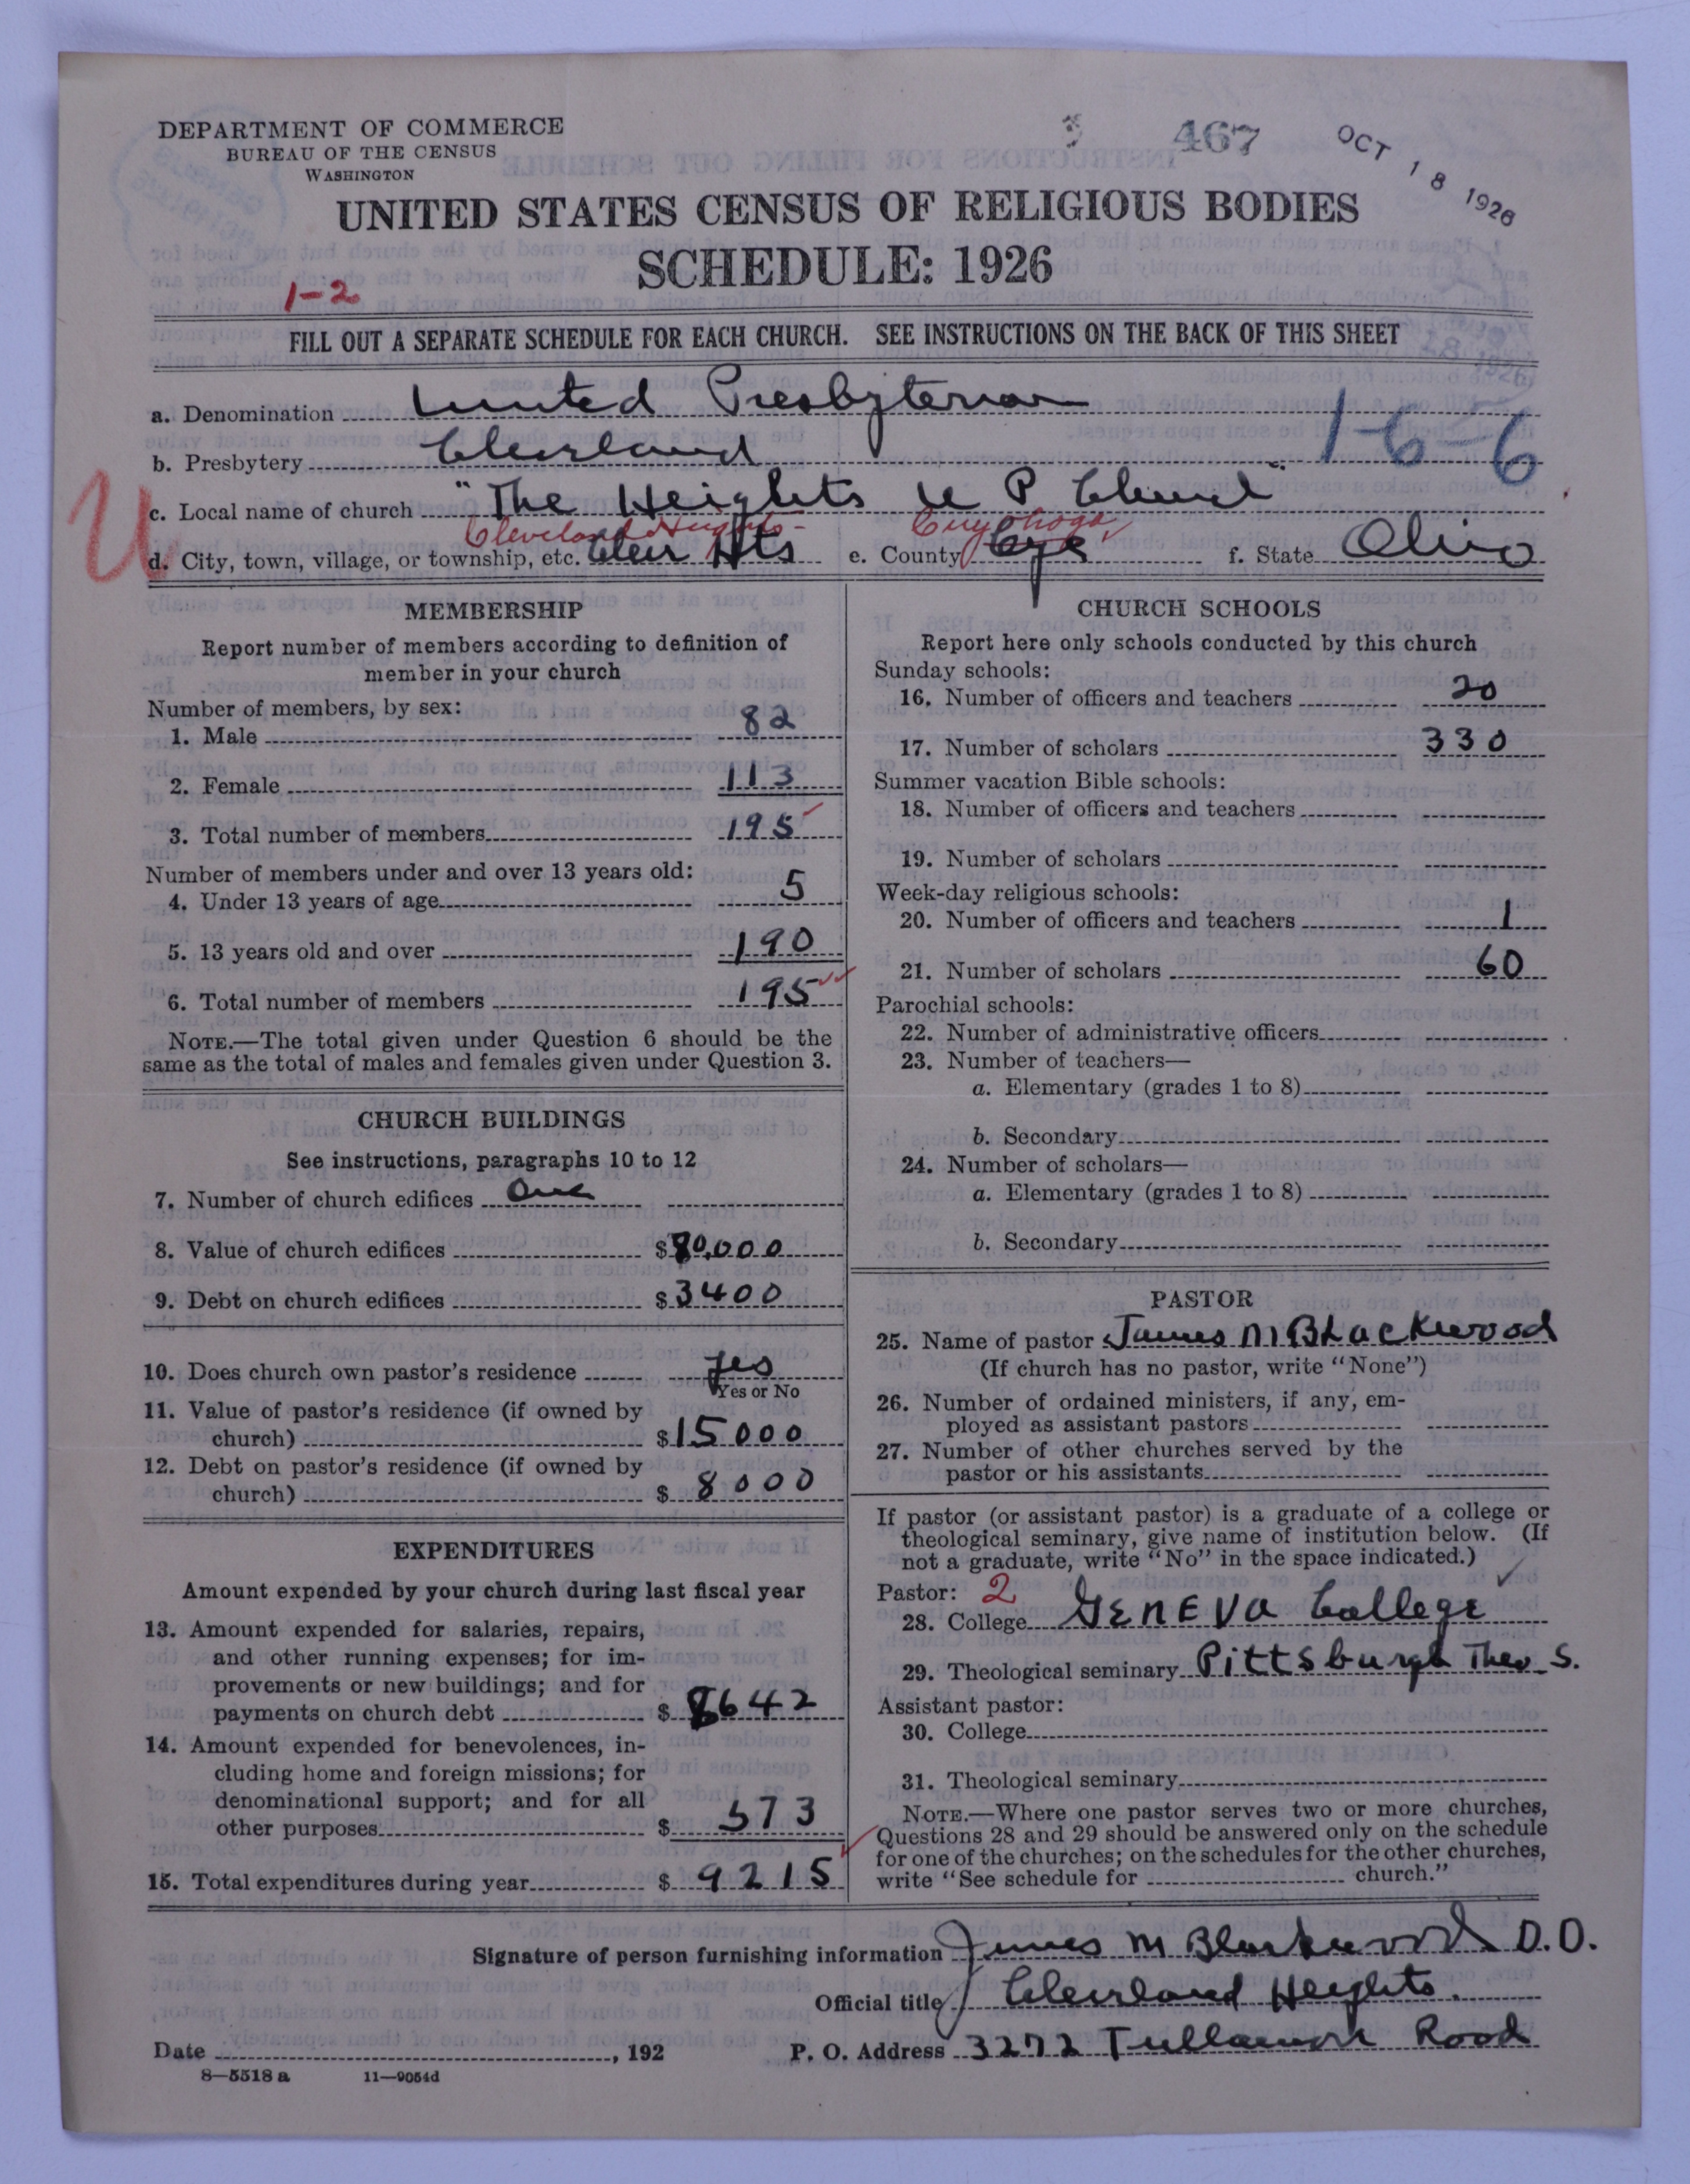 DEPARTMENT OF COMMERCE
BUREAU OF THE CENSUS
WASHINGTON
467
OCT 18 1926
UNITED STATES CENSUS OF RELIGIOUS BODIES
SCHEDULE: 1926
1-2
FILL OUT A SEPARATE SCHEDULE FOR EACH CHURCH. SEE INSTRUCTIONS ON THE BACK OF THIS SHEET
a. Denomination United Presbyterian
b. Presbytery Cleveland
1-6-6
U
c. Local name of church "The Heights U P Church"
Cleveland Heights- Cuyahoga
d. City, town, village, or township, etc. Clev Hts e. County Cya f. State Ohio
MEMBERSHIP
Report number of members according to definition of
member in your church
Number of members, by sex:
1. Male 82
2. Female 113
3. Total number of members 195
Number of members under and over 13 years old:
4. Under 13 years of age 5
5. 13 years old and over 190
6. Total number of members 195
NOTE.—The total given under Question 6 should be the
same as the total of males and females given under Question 3.
CHURCH BUILDINGS
See instructions, paragraphs 10 to 12
7. Number of church edifices One
8. Value of church edifices $80,000
9. Debt on church edifices $3400
10. Does church own pastor's residence yes
Yes or No
11. Value of pastor's residence (if owned by
church) $15000
12. Debt on pastor's residence (if owned by
church) $8000
EXPENDITURES
Amount expended by your church during last fiscal year
13. Amount expended for salaries, repairs,
and other running expenses; for im-
provements or new buildings; and for
payments on church debt $8642
14. Amount expended for benevolences, in-
cluding home and foreign missions; for
denominational support; and for all
other purposes $573
15. Total expenditures during year $9215
CHURCH SCHOOLS
Report here only schools conducted by this church
Sunday schools:
16. Number of officers and teachers 20
17. Number of scholars 330
Summer vacation Bible schools:
18. Number of officers and teachers
19. Number of scholars
Week-day religious schools:
20. Number of officers and teachers 1
21. Number of scholars 60
Parochial schools:
22. Number of administrative officers
23. Number of teachers—
a. Elementary (grades 1 to 8)
b. Secondary
24. Number of scholars—
a. Elementary (grades 1 to 8)
b. Secondary
PASTOR
25. Name of pastor James M Blackwood
(If church has no pastor, write "None")
26. Number of ordained ministers, if any, em-
ployed as assistant pastors
27. Number of other churches served by the
pastor or his assistants
If pastor (or assistant pastor) is a graduate of a college or
theological seminary, give name of institution below. (If
not a graduate, write "No" in the space indicated.)
Pastor: 2
28. College GENEVA College
29. Theological seminary Pittsburgh Theo. S.
Assistant pastor:
30. College
31. Theological seminary
NOTE.—Where one pastor serves two or more churches,
Questions 28 and 29 should be answered only on the schedule
for one of the churches; on the schedules for the other churches,
write "See schedule for church."
Signature of person furnishing information James M Blackwood D.D.
Official title Cleveland Heights.
Date , 192 P. O. Address 3272 Tullamore Road
8—5518 a 11—9054d